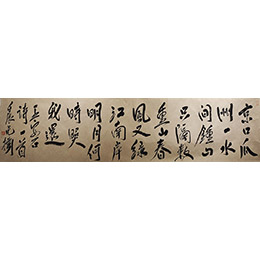 京口瓜
洲一水
間鍾山
只隔數
重山春
風又綠
江南岸
明月何
時照
我還
王安石
詩一首